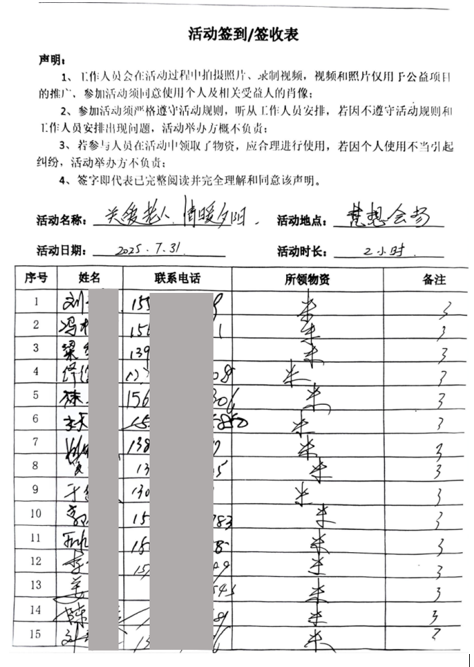 活动签到/签收表
声明:
1、工作人员会在活动过程中拍摄照片、录制视频，视频和照片仅用于公益项目
的推广、参加活动须同意使用个人及相关受益人的肖像;
2、参加活动须严格遵守活动规则，听从工作人员安排，若因不遵守活动规则和
工作人员安排出现问题，活动举办方概不负责;
3、若参与人员在活动中领取了物资，应合理进行使用，若因个人使用不当引起
纠纷，活动举办方不负责;
4、签字即代表已完整阅读并完全理解和同意该声明。
活动名称: 关爱老人 情暖夕阳. 活动地点: 梦想会场
活动日期: 2025.7.31 活动时长: 2小时
序号 姓名 联系电话 所领物资 备注
1 刘 155 米 3
2 冯 156 1 米 3
3 梁 139 米 3
4 08 米 3
5 156 米 3
6 米 3
7 138 米 3
8 13 5 米 3
9 于 130 米 3
10 15 783 米 3
11 15 8 米 3
12 李 15 米 3
13 姜 米 3
14 陈 米 3
15 刘 13 米